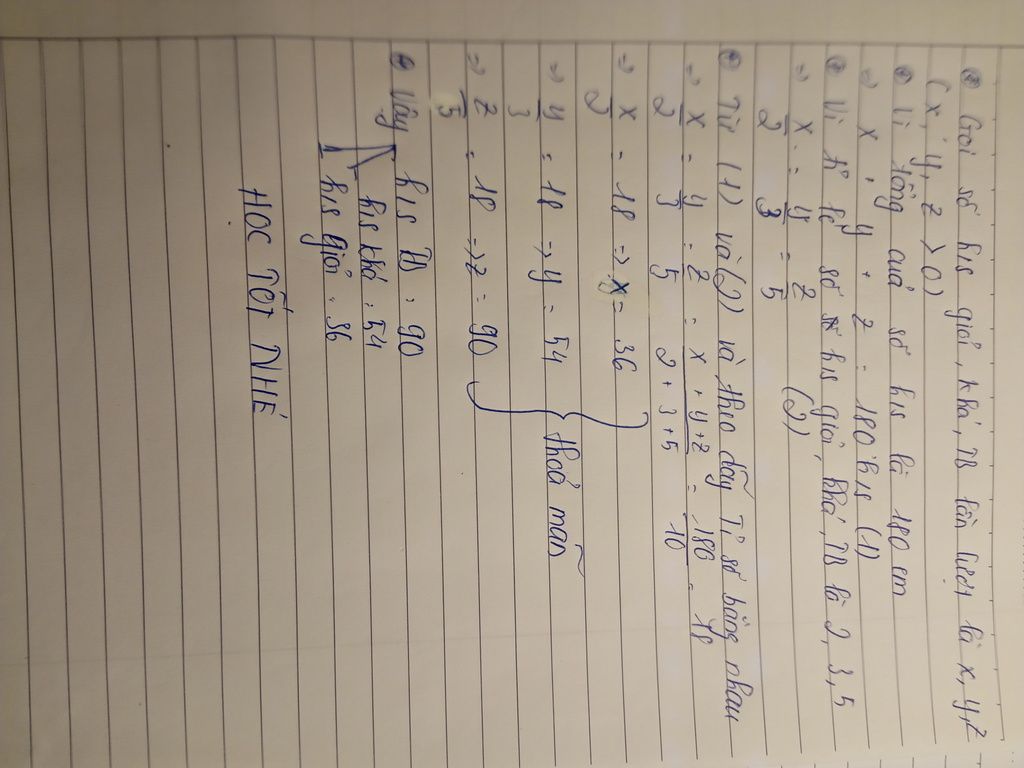 Gọi số his giỏi, khá, TB lần lượt là x, y, z
(x, y, z > 0)
Vì tổng của số his là 180 em
=> x + y + z = 180 his (1)
Vì tỉ lệ số his giỏi, khá, TB là 2, 3, 5
=> x/2 = y/3 = z/5 (2)
Từ (1) và (2) và theo dãy Tỉ số bằng nhau
=> x/2 = y/3 = z/5 = x + y + z / 2 + 3 + 5 = 180/10 = 18
=> x/2 = 18 => x = 36
=> y/3 = 18 => y = 54 thoả mãn
=> z/5 = 18 => z = 90
Vậy his TB : 90
his khá : 54
his giỏi : 36
HOC TỐT NHÉ